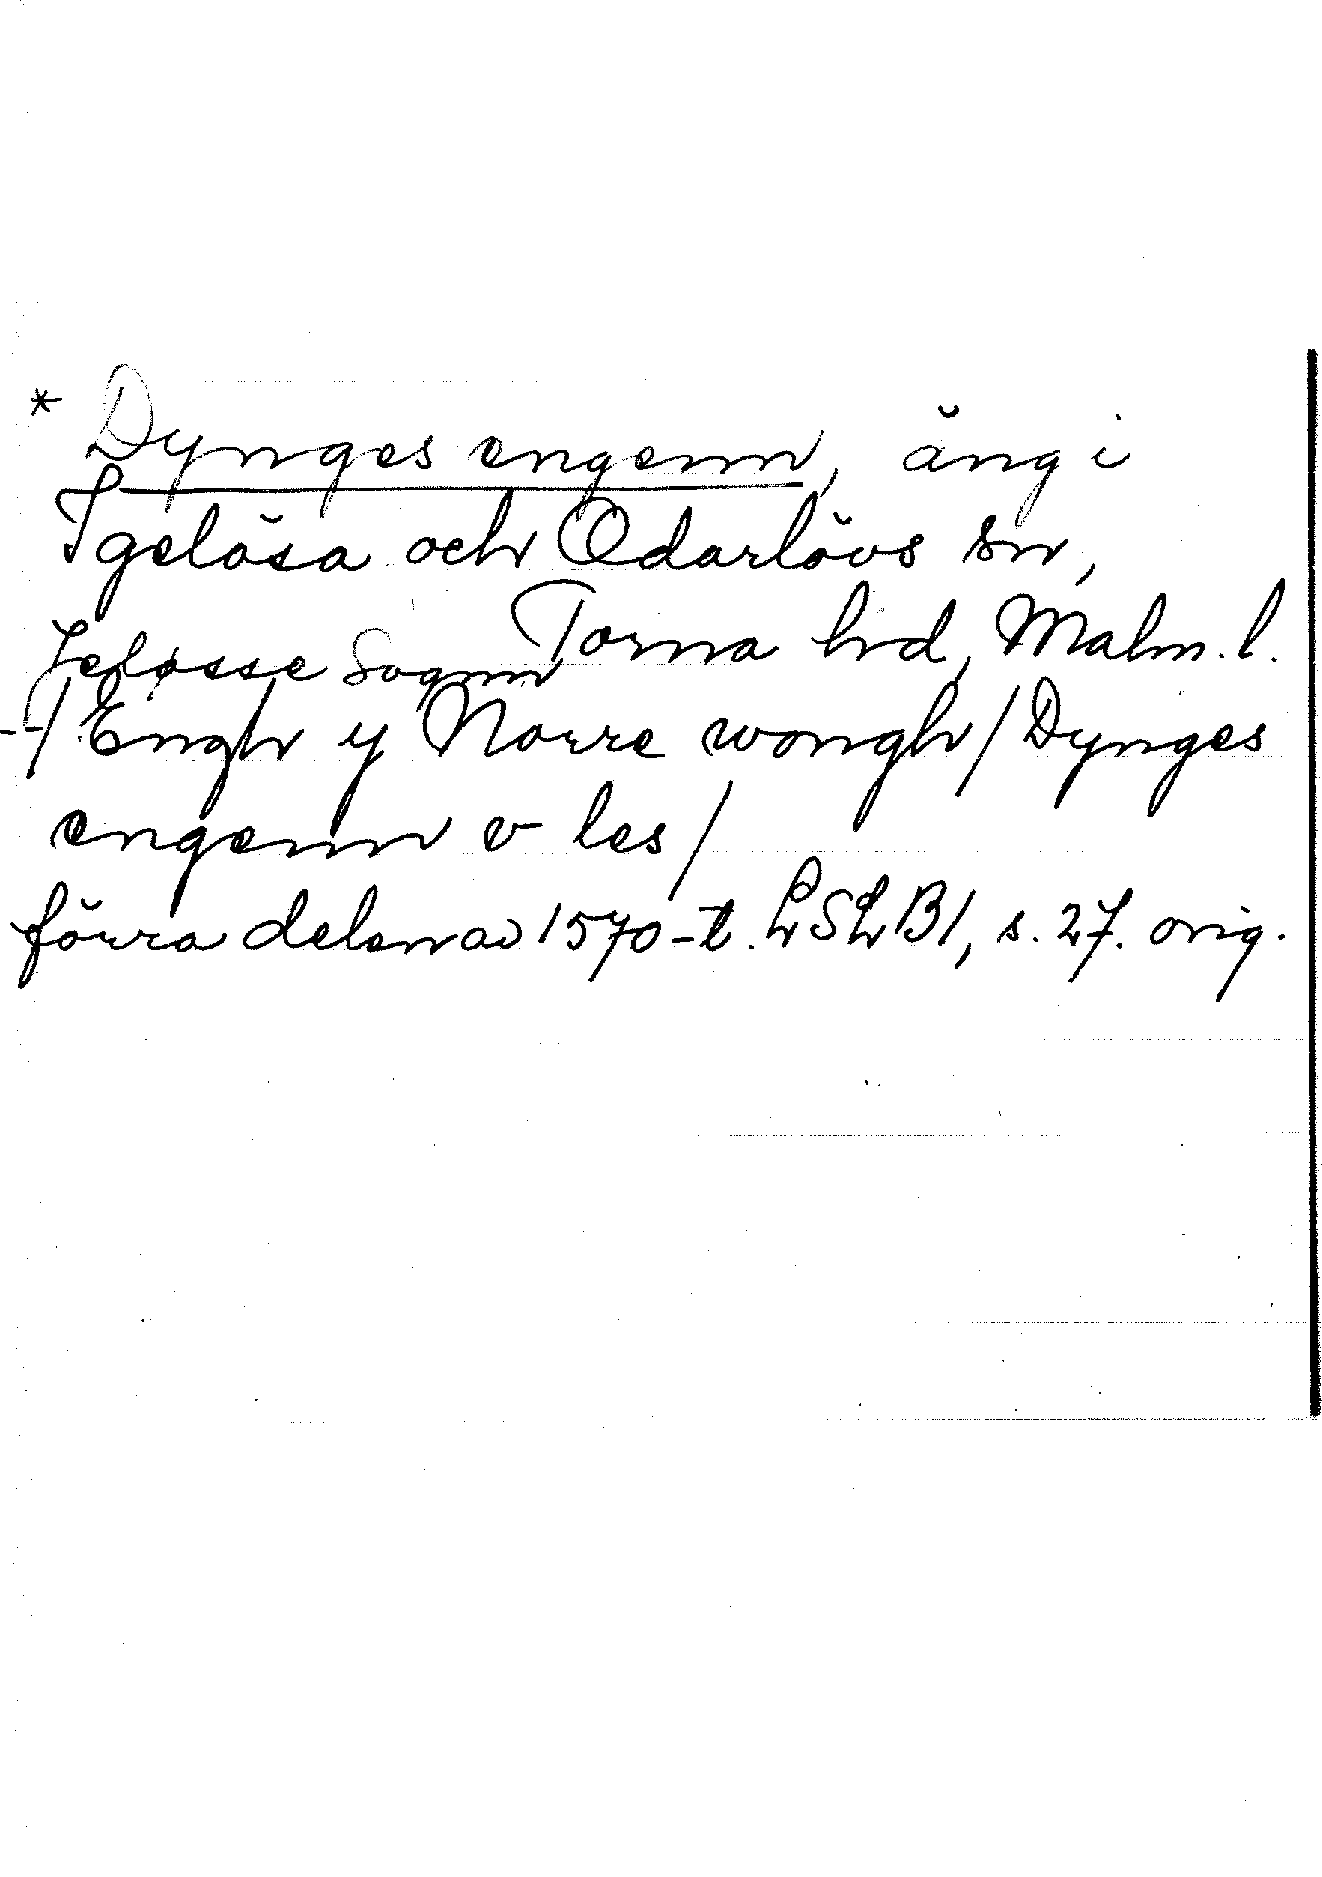 * Dynges engenn, äng i
Igelösa och Odarlövs snr,
Torna hd, Malm. l.
Jeløsse Sognn
--/Engh y Norre wongh/Dynges
engenn v les/
förra delen av 1570-t. LSLB1, s. 27. orig.